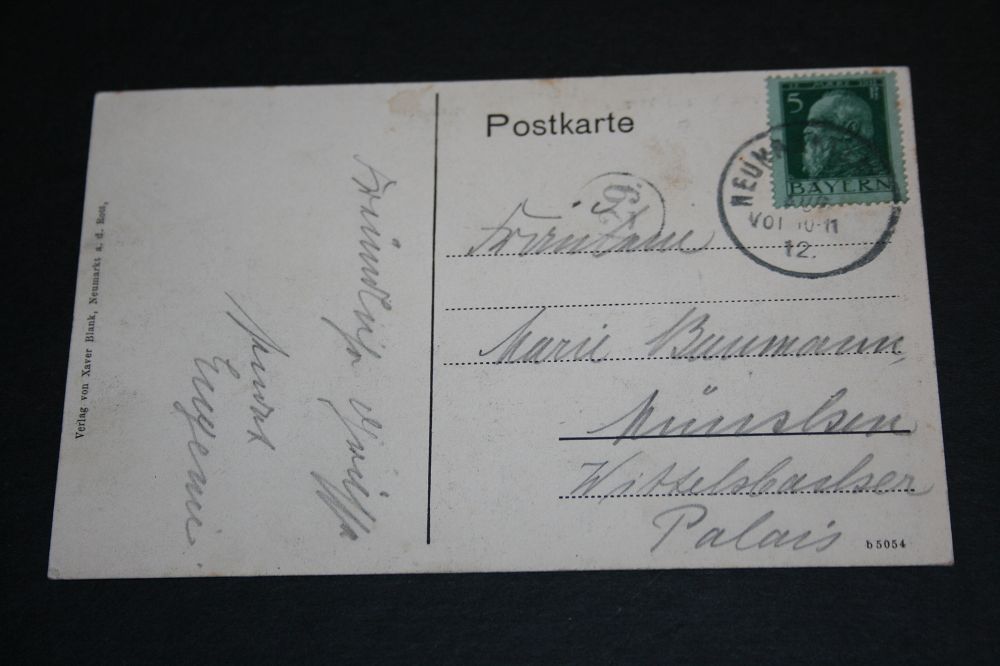 Verlag von Xaver Blank, Neumarkt a. d. Rott,
Freundliche Grüsse
sendet
Eugenie.
Postkarte
5
BAYERN
VOR 10-11
12.
Fräulein
Marie Baumann
München
Wittelsbacher
Palais
b 5054